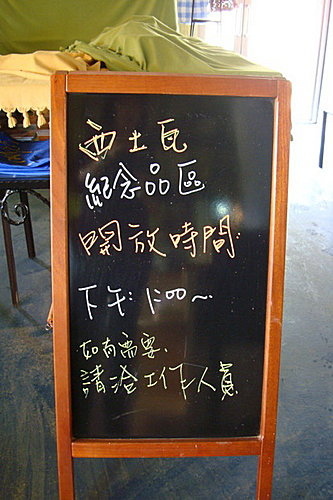 西土瓦
紀念品區
開放時間:
下午: 1:00~
如有需要,
請洽工作人員